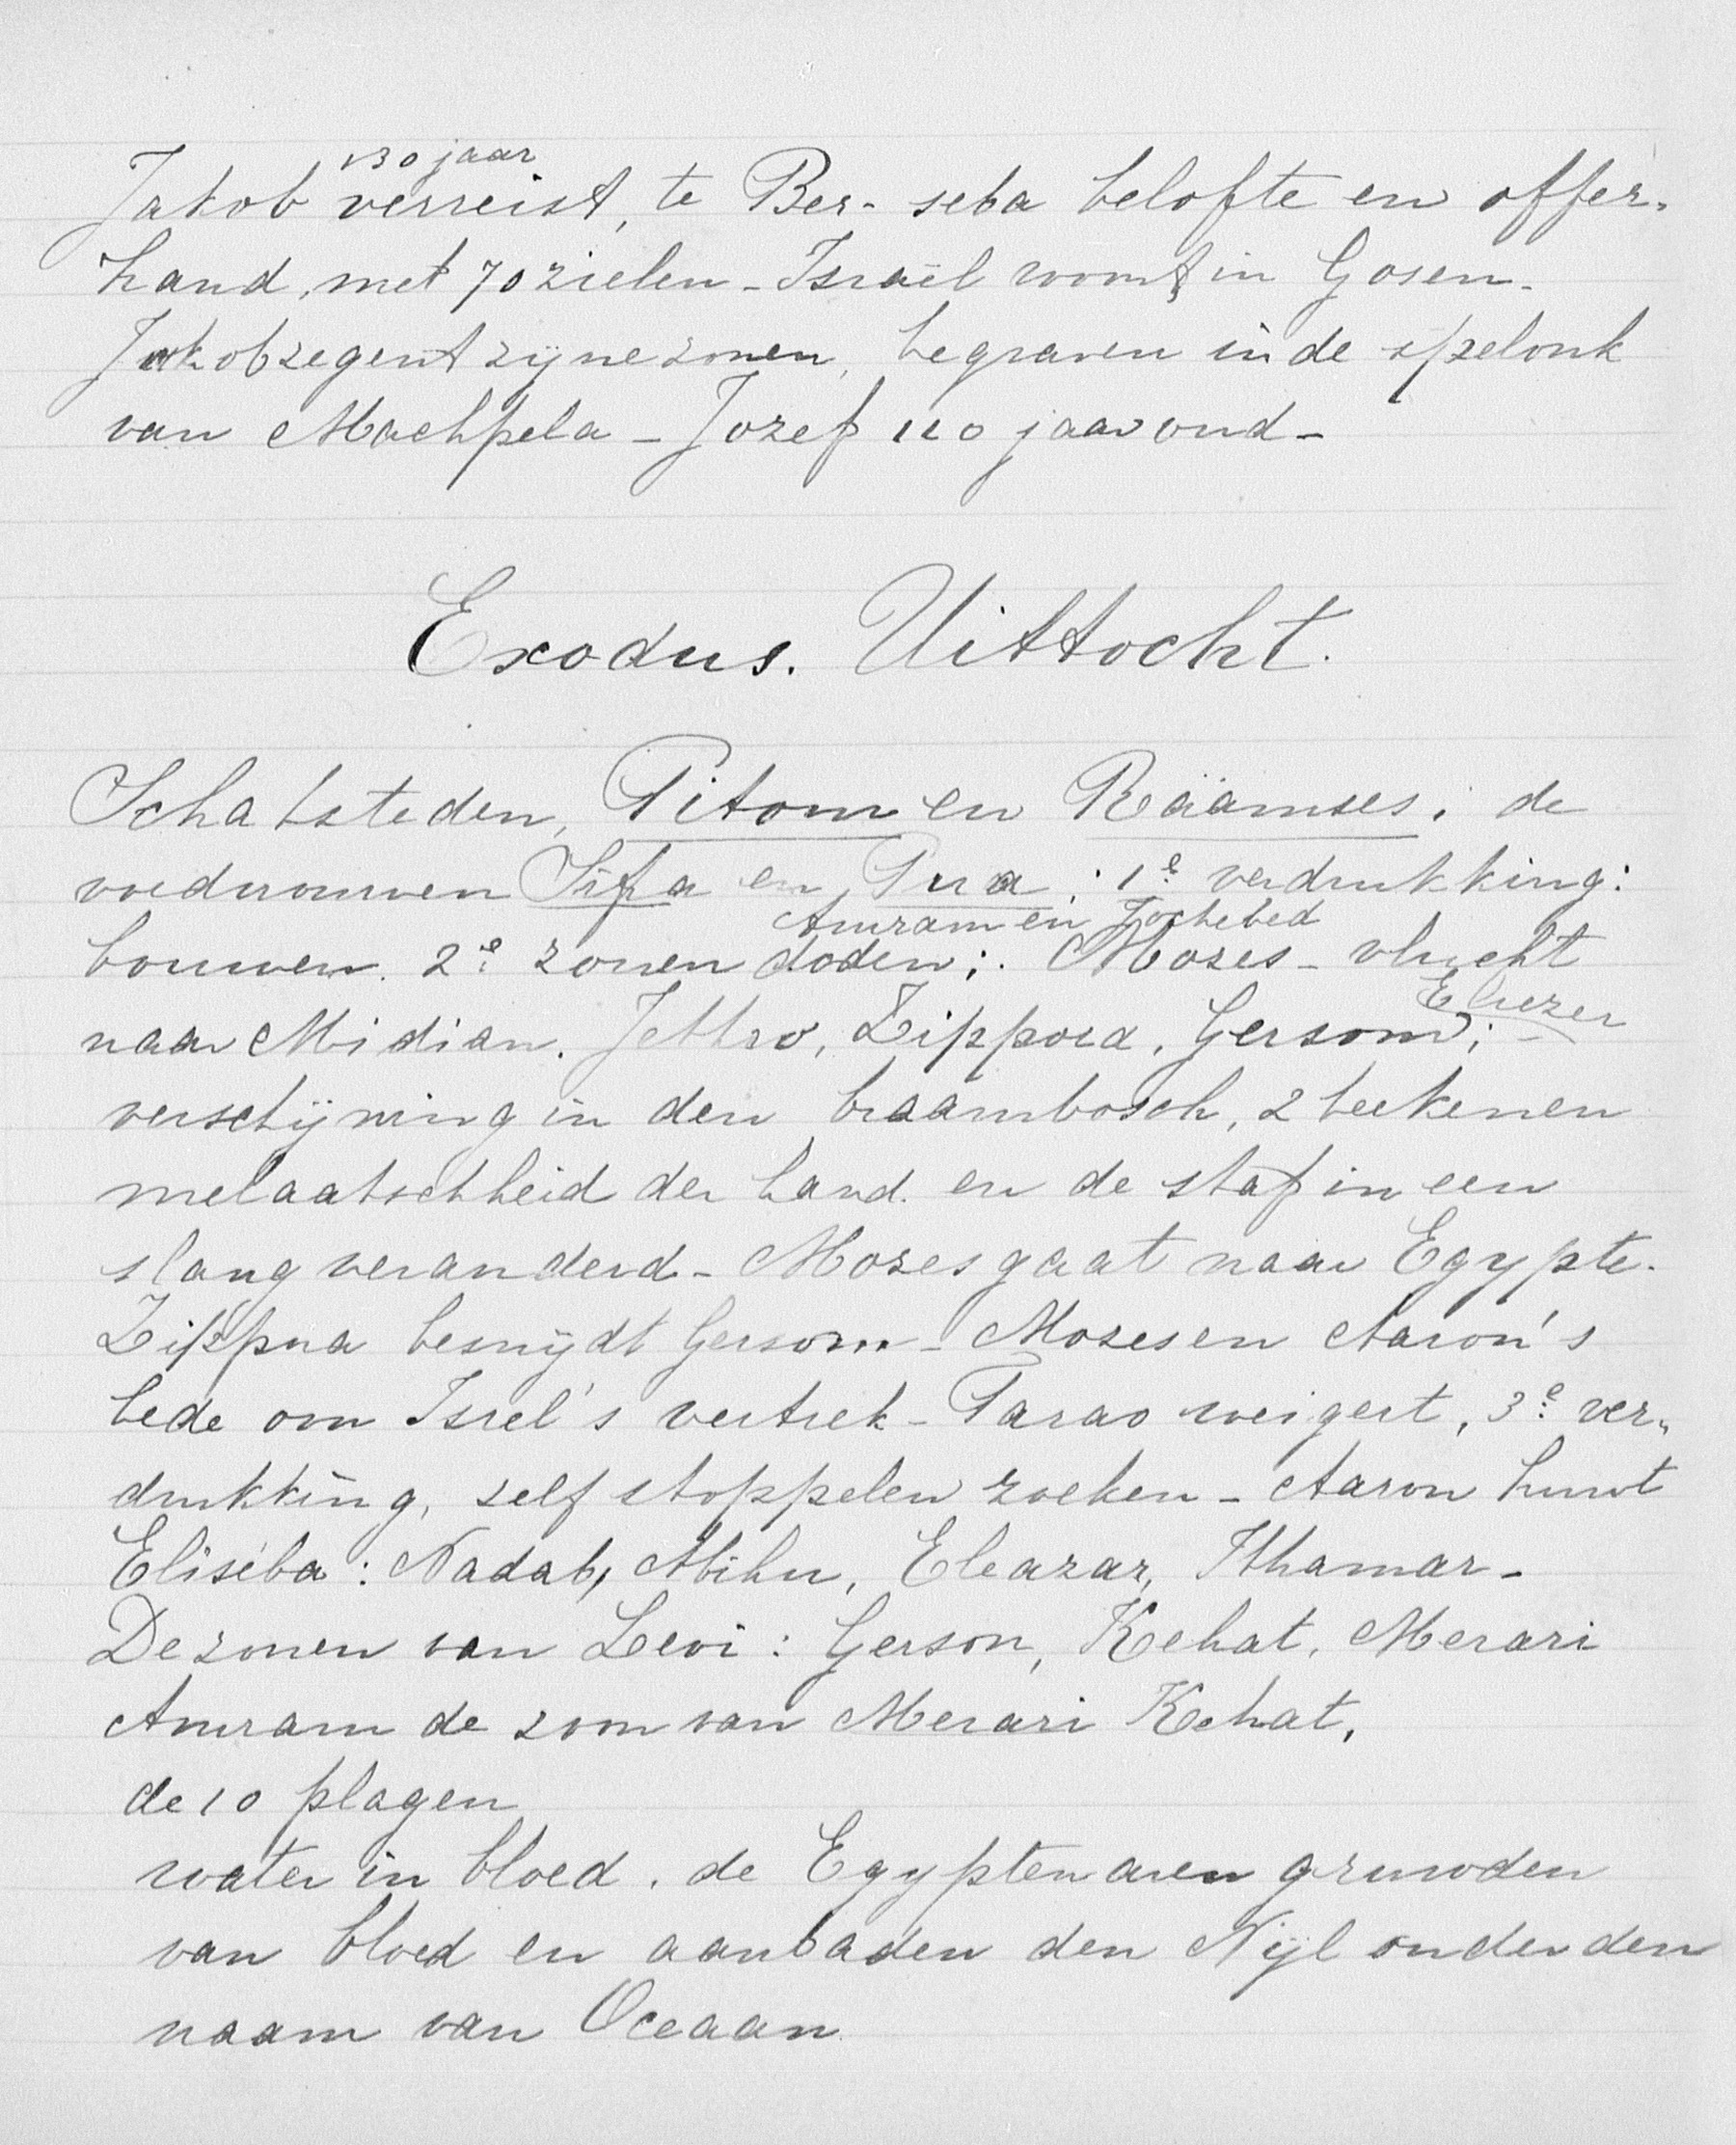 130 jaar
Jakob verreist, te Ber-seba belofte en offer-
hand, met 70 zielen - Israël woont in Gosen -
Jakob zegent zijne zonen, begraven in de spelonk
van Machpela - Jozef 110 jaar oud -
Exodus. Uittocht.
Schatsteden, Pitom en Raämses; de
voedvrouwen Sifra en Pua; 1e verdrukking:
Amram en Jochebed
bouwen. 2e zonen doden; . Mozes - vlucht
Eliezer
naar Midian. Jethro, Zippora, Gersom; -
verschijning in den braambosch, 2 teekenen
melaatschheid der hand. en de staf in een
slang veranderd - Mozes gaat naar Egypte -
Zippra besnijdt Gersom - Mozes en Aaron's
bede om Isrel's vertrek - Parao weigert, 3e ver-
drukking, self stoppelen zoeken - Aaron huwt
Eliséba: Nadab, Abihu, Eleazar, Ithamar -
De zonen van Levi: Gerson, Kehat, Merari
Amram de zoon van Merari Kehat,
de 10 plagen
water in bloed. de Egyptenaren gruwden
van bloed en aanbaden den Nijl onder den
naam van Oceaan.